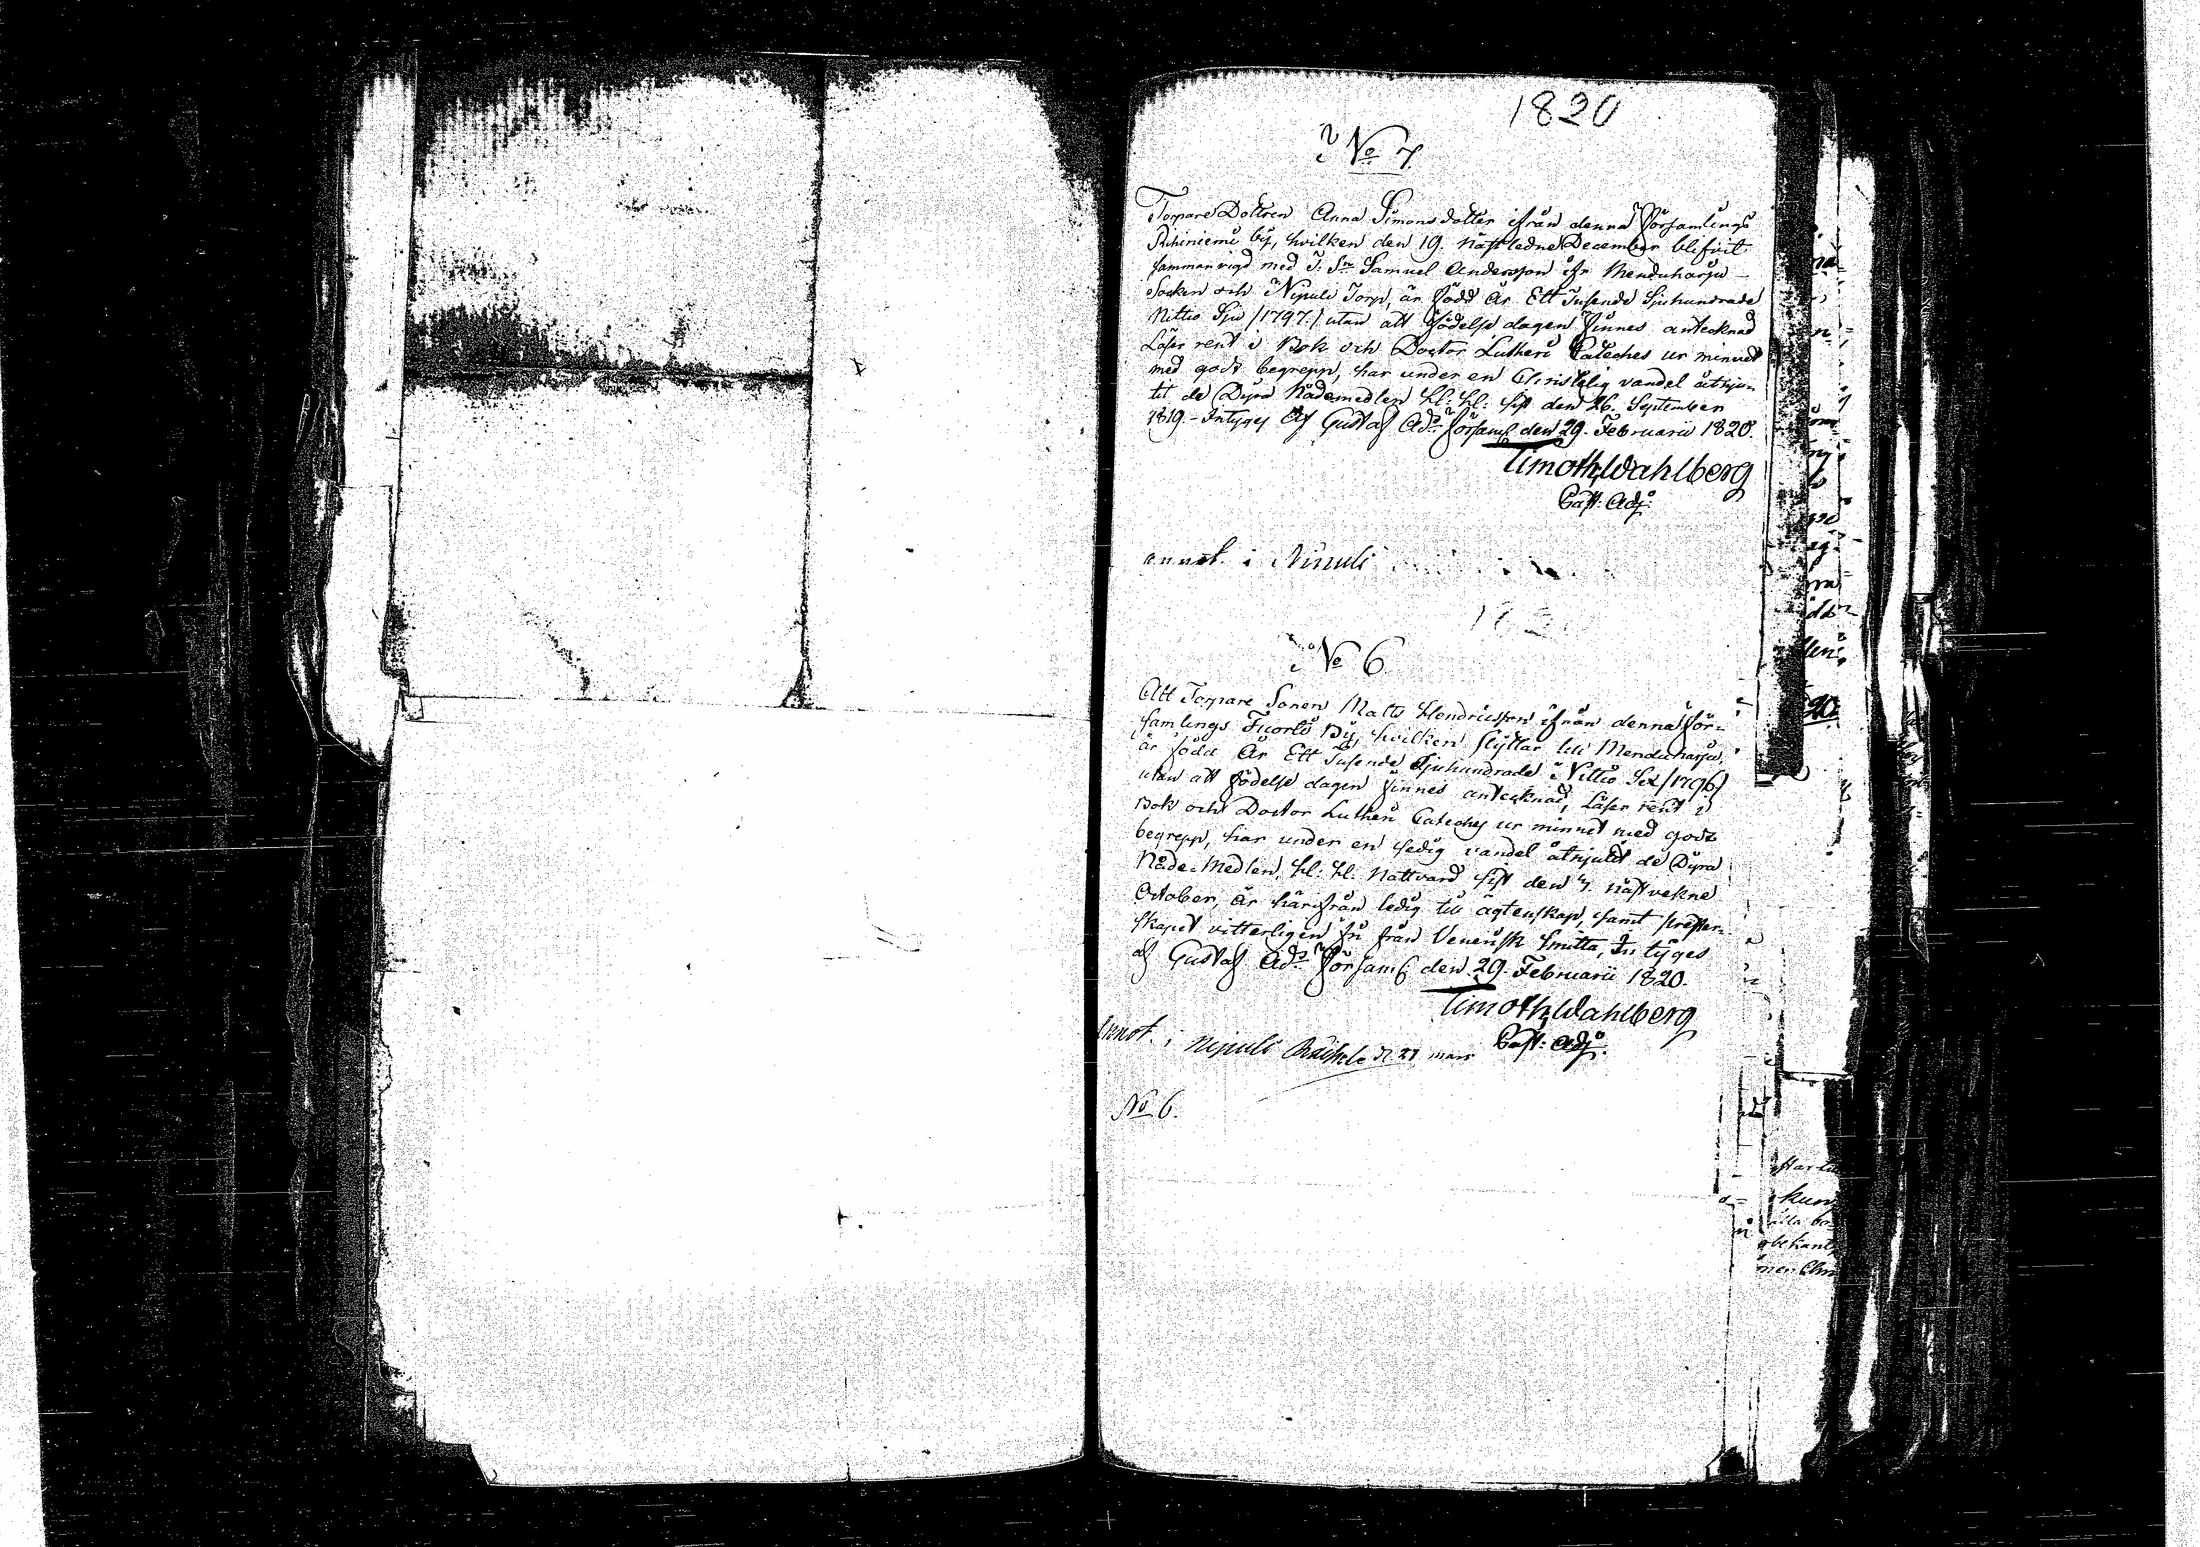 1820
No 7.
Torpare Dottren Anna Simonsdotter ifrån denna Församlings
by, hvilken den 19. nästledne December blifvit
sammanvigd med T. Sn Samuel Andersson ifr Menduharju
Socken och Nipuli Torp, är född År Ett Tusende Sjuhundrade
Nittio Sju /1797./ utan att födelse dagen finnes antecknad
Läser rent i Bok och Doctor Lutheri Cateches ur minnet
med godt begrepp, har under en Christelig vandel åtnju-
tit de Dyra Nådemedlen Hl: Hl: sist den 26. September
1819. - Intygas Af Gustaf Ads Församl den 29. Februarii 1820.
Timoth. Wahlberg
Past: Adj:
annot. i Nipuli
No 6
Att Torpare Sonen Matts Hendricsson ifrån denna För-
samlings By, hvilken flyttar till Menduharju,
är född År Ett Tusende Sjuhundrade Nittio Sex /1796/
utan att födelse dagen finnes antecknad, Läser rent i
Bok och Doctor Lutheri Cateches ur minnet med godt
begrepp, har under en sedig vandel åtnjutit de Dyra
Nåde-Medlen, Hl: Hl: Nattvard sist den 4. näst vekne
October, är härifrån ledig till ägtenskap, samt prester-
skapet vitterligen fri från Venerisk Smitta, Intyges
af Gustaf Ads Församl den 29. Februarii 1820.
Timoth. Wahlberg
Past: Adj:
Annot. i Nipuli d. 27 mars
No 6.